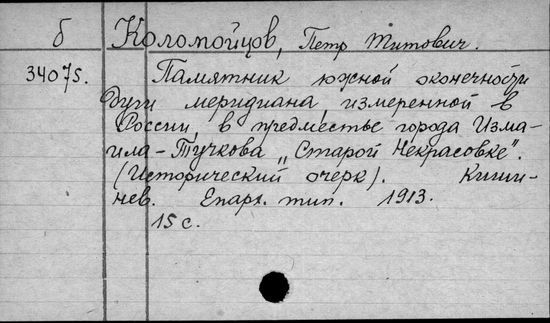 б Коломойцов, Петр Титович.
34075. Памятник южной оконечности
дуги меридиана, измеренной в
России, в предместье города Изма-
ила-Тучкова „Старой Некрасовке".
(Исторический очерк). Киши-
нев. Епарх. тип. 1913.
15 с.